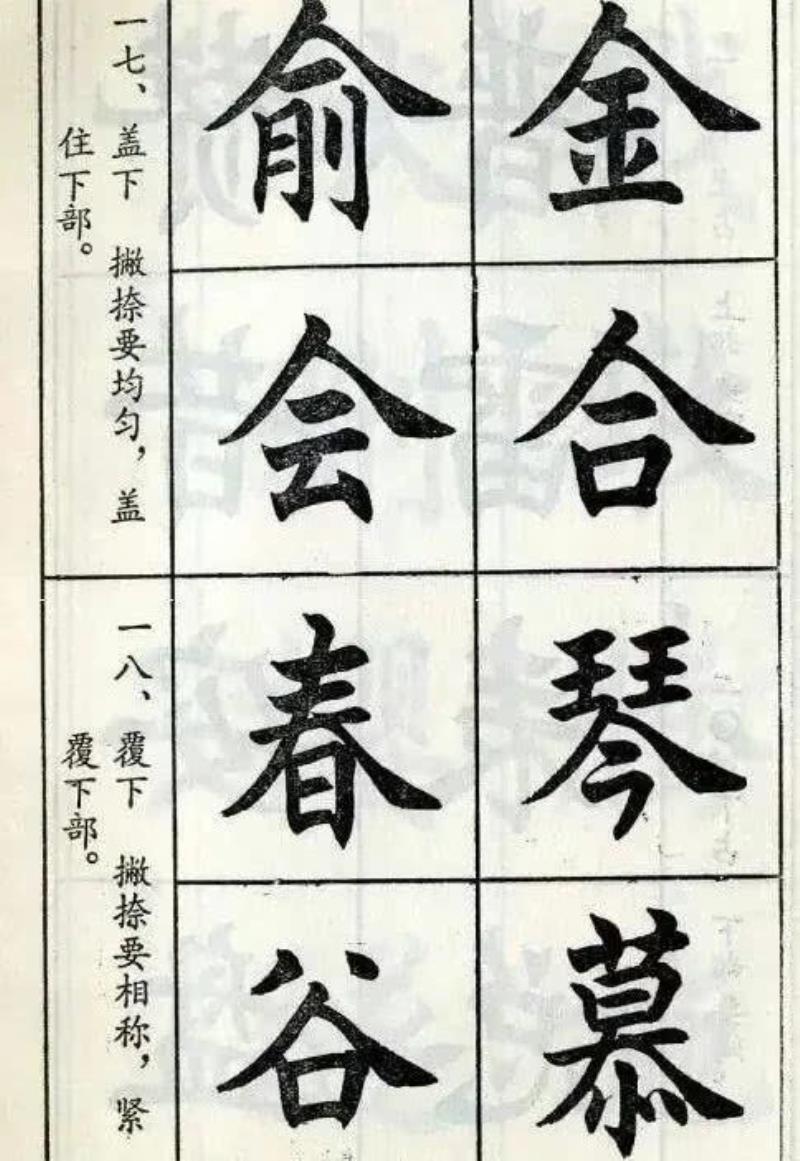 一七、盖下 撇捺要均匀，盖
住下部。
金 俞
合 会
一八、覆下 撇捺要相称，紧
覆下部。
琴 春
慕 谷